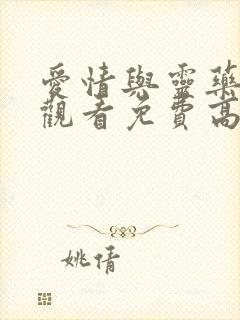 愛情與靈藥
觀看免費高
姚倩